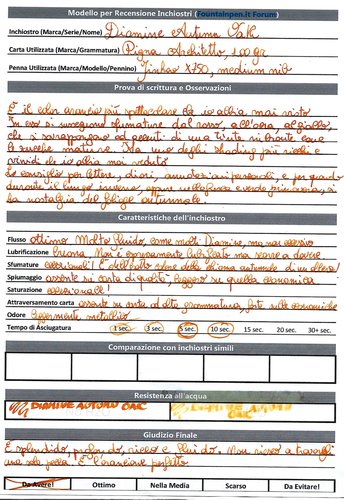 Modello per Recensione Inchiostri (Fountainpen.it Forum)
Inchiostro (Marca/Serie/Nome) Diamine Autumn Oak
Carta Utilizzata (Marca/Grammatura) Pigna Architetto, 100 gr
Penna Utilizzata (Marca/Modello/Pennino) Jinhao X750, medium nib
Prova di scrittura e Osservazioni
È il color arancio più spettacolare che io abbia mai visto
In esso si inseguono sfumature dal rosso, all'ocra, al giallo,
che si sovrappongono ad accenti di una tinta vibrante come
le zucche mature. Ha uno degli shading più ricchi e
vividi che io abbia mai veduto.
Lo consiglio per lettere, diari, annotazioni personali, e per quando
durante il lungo inverno, oppure nell'afosa e verde primavera, si
ha nostalgia del foliage autunnale.
Caratteristiche dell'inchiostro
Flusso ottimo. Molto fluido, come molti Diamine, ma mai eccessivo
Lubrificazione buona. Non è propriamente lubrificato ma scorre a dovere
Sfumature eccezionali! È nell'estro della chioma autunnale di un albero!
Spiumaggio assente su carta di qualità, leggero su quella economica
Saturazione eccezionale!
Attraversamento carta assente su carte ad alta grammatura, forte sulle economiche
Odore leggermente metallico
Tempo di Asciugatura 1 sec. 3 sec. 5 sec. 10 sec. 15 sec. 20 sec. 30+ sec.
Comparazione con inchiostri simili
Resistenza all'acqua
DIAMINE AUTUMN OAK DIAMINE AUTUMN OAK
Giudizio Finale
È splendido, profondo, ricco e fluido. Non riesco a trovargli
una sola pecca. È l'arancione perfetto
Da Avere! Ottimo Nella Media Scarso Da Evitare!